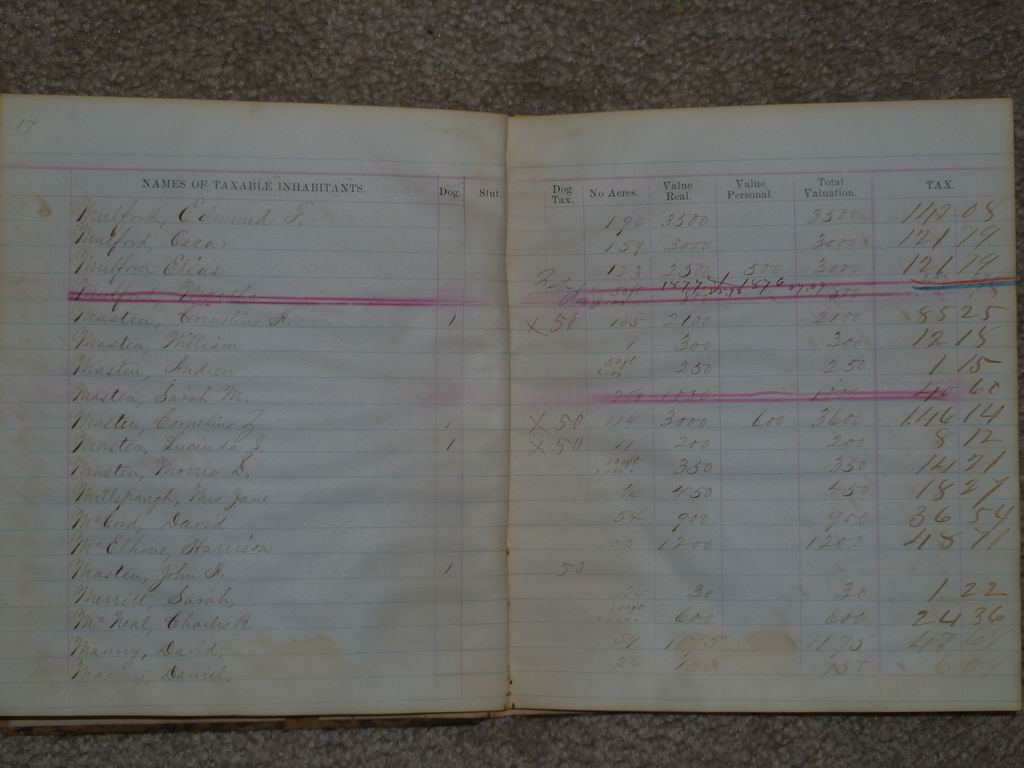 17
NAMES OF TAXABLE INHABITANTS. Dog. Slut. Dog Tax. No Acres. Value Real. Value Personal. Total Valuation. TAX.
Mulford, Edmund F. 190 3500 3500 142 08
Mulford, Oscar 159 3000 3000 121 79
Mulford Elias 123 2500 500 3000 121 79
Mulford, Martha 50ft 1877 1876
Masten, Cornelius A. 1 X 50 105 2100 2100 85 25
Masten, William 1 300 300 12 18
Masten, Andrew 50ft 250 250 1 15
Masten, Sarah M. 1000 40 60
Masten, Cornelius Z 1 X 50 114 3000 600 3600 146 14
Masten, Lucinda J. 1 X 50 11 200 200 8 12
Masten, Morris D. 100ft 350 350 14 21
Millspaugh, Mrs Jane 1/2 450 450 18 27
McCord, David 54 900 900 36 54
McElhone, Harrison 100 1200 1200 48 71
Masten, John F. 1 50
Merritt, Sarah, 30 30 1 22
McNeal, Charles B 600 600 24 36
Manny, David, 59 1175 1175 47 69
Manny, Daniel, 22 150 150 6 09